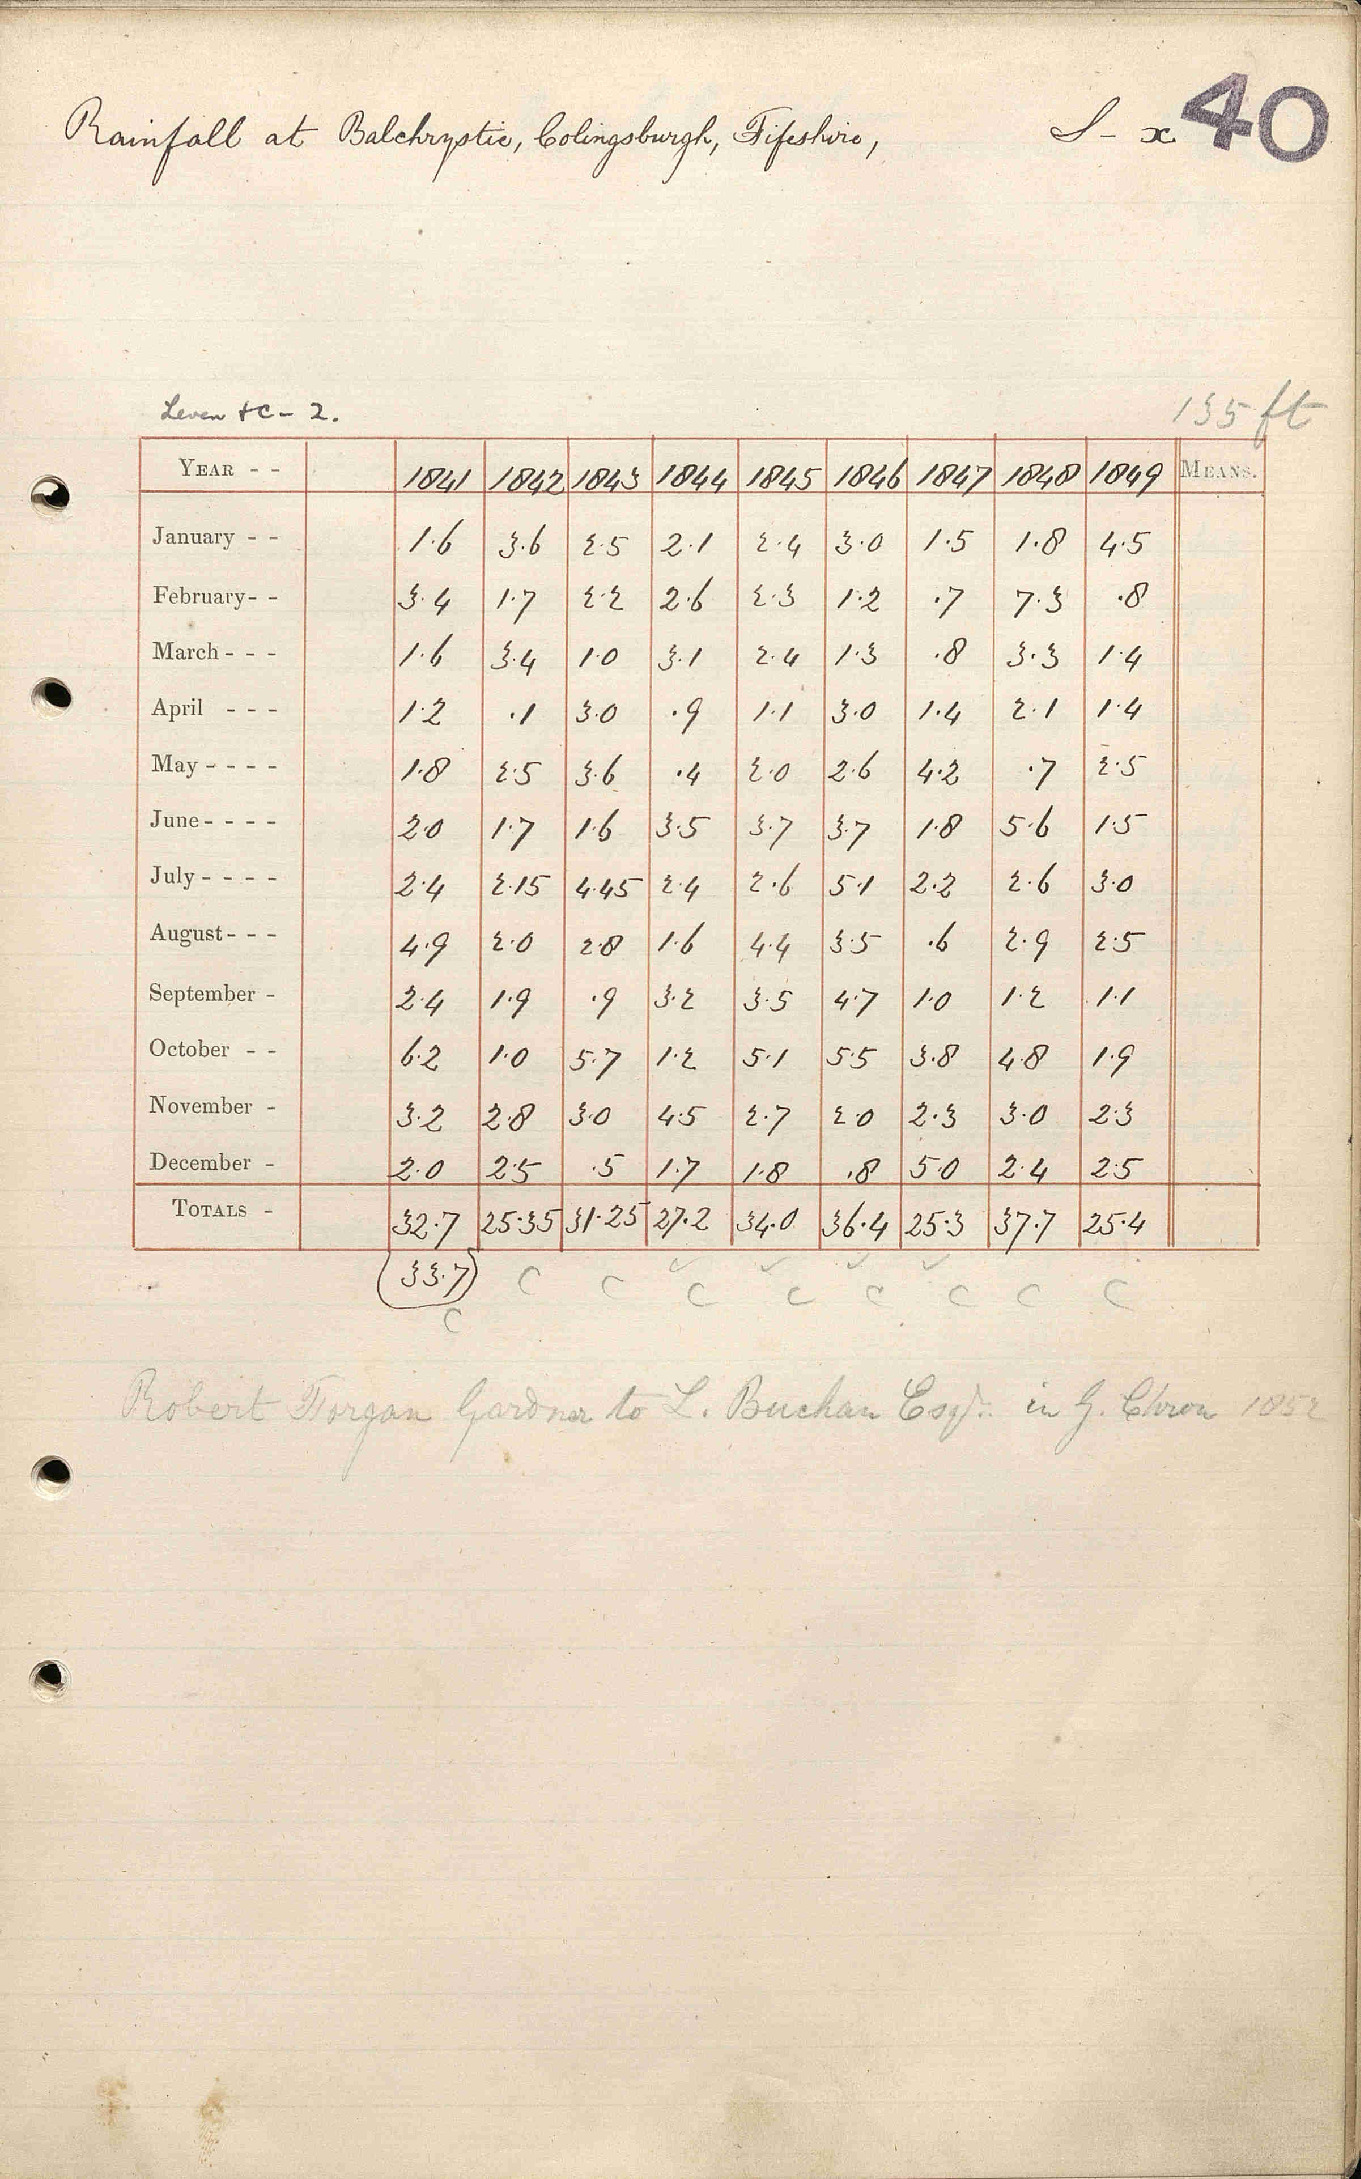 Rainfall at Balchrystie, Colingsburgh, Fifeshire, S - x 40
Leven &c - 2. 135 ft
YEAR - - 1841 1842 1843 1844 1845 1846 1847 1848 1849 MEANS.
January - - 1.6 3.6 2.5 2.1 2.4 3.0 1.5 1.8 4.5
February - - 3.4 1.7 2.2 2.6 2.3 1.2 .7 7.3 .8
March - - - 1.6 3.4 1.0 3.1 2.4 1.3 .8 3.3 1.4
April - - - 1.2 .1 3.0 .9 1.1 3.0 1.4 2.1 1.4
May - - - - 1.8 2.5 3.6 .4 2.0 2.6 4.2 .7 2.5
June - - - - 2.0 1.7 1.6 3.5 3.7 3.7 1.8 5.6 1.5
July - - - - 2.4 2.15 4.45 2.4 2.6 5.1 2.2 2.6 3.0
August - - - 4.9 2.0 2.8 1.6 4.4 3.5 .6 2.9 2.5
September - 2.4 1.9 .9 3.2 3.5 4.7 1.0 1.2 1.1
October - - 6.2 1.0 5.7 1.2 5.1 5.5 3.8 4.8 1.9
November - 3.2 2.8 3.0 4.5 2.7 2.0 2.3 3.0 2.3
December - 2.0 2.5 .5 1.7 1.8 .8 5.0 2.4 2.5
TOTALS - 32.7 25.35 31.25 27.2 34.0 36.4 25.3 37.7 25.4
(33.7) C C C C C C C C
C
Robert Forgan Gardner to L. Buchan Esqr. in G. Chron 1852